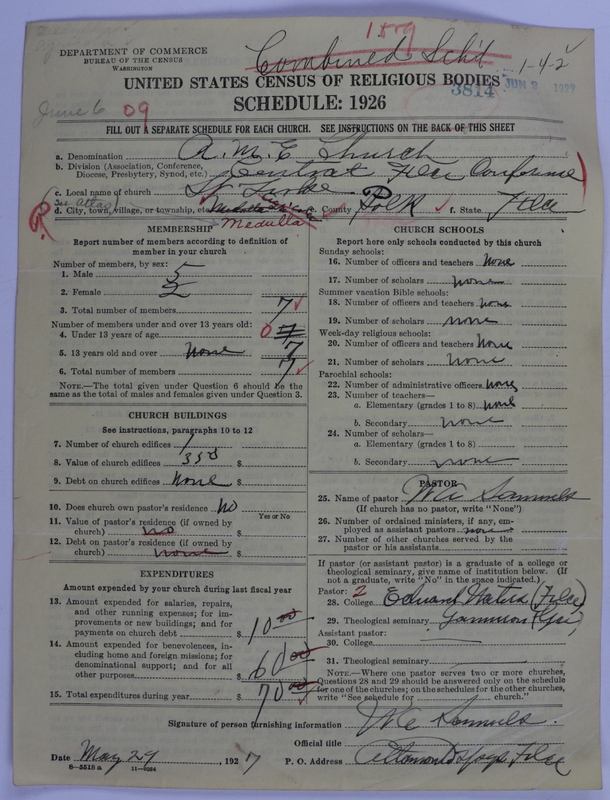 1889
DEPARTMENT OF COMMERCE
BUREAU OF THE CENSUS
WASHINGTON
Combined Sch'd
1-4-2
UNITED STATES CENSUS OF RELIGIOUS BODIES
3814 JUN 2
SCHEDULE: 1926
June 6 09
FILL OUT A SEPARATE SCHEDULE FOR EACH CHURCH. SEE INSTRUCTIONS ON THE BACK OF THIS SHEET
a. Denomination A.M.E. Church
b. Division (Association, Conference, Diocese, Presbytery, Synod, etc.) Central Fla Conference
c. Local name of church St. Luke
d. City, town, village, or township, etc. Medulla e. County Polk f. State Fla
MEMBERSHIP
Report number of members according to definition of member in your church
Number of members, by sex:
1. Male 5
2. Female 2
3. Total number of members 7
Number of members under and over 13 years old:
4. Under 13 years of age 0 7
5. 13 years old and over None 7
6. Total number of members 7
NOTE.—The total given under Question 6 should be the same as the total of males and females given under Question 3.
CHURCH BUILDINGS
See instructions, paragraphs 10 to 12
7. Number of church edifices 1
8. Value of church edifices 350 $
9. Debt on church edifices None $
10. Does church own pastor's residence No
Yes or No
11. Value of pastor's residence (if owned by church) no $
12. Debt on pastor's residence (if owned by church) none $
EXPENDITURES
Amount expended by your church during last fiscal year
13. Amount expended for salaries, repairs, and other running expenses; for improvements or new buildings; and for payments on church debt $ 10 00
14. Amount expended for benevolences, including home and foreign missions; for denominational support; and for all other purposes $ 60 00
15. Total expenditures during year $ 70 00
CHURCH SCHOOLS
Report here only schools conducted by this church
Sunday schools:
16. Number of officers and teachers none
17. Number of scholars none
Summer vacation Bible schools:
18. Number of officers and teachers none
19. Number of scholars none
Week-day religious schools:
20. Number of officers and teachers none
21. Number of scholars none
Parochial schools:
22. Number of administrative officers none
23. Number of teachers—
a. Elementary (grades 1 to 8) none
b. Secondary none
24. Number of scholars—
a. Elementary (grades 1 to 8)
b. Secondary none
PASTOR
25. Name of pastor W.C. Sammuels
(If church has no pastor, write "None")
26. Number of ordained ministers, if any, employed as assistant pastors none
27. Number of other churches served by the pastor or his assistants
If pastor (or assistant pastor) is a graduate of a college or theological seminary, give name of institution below. (If not a graduate, write "No" in the space indicated.)
Pastor: 2
28. College Edward Waters (Fla)
29. Theological seminary Gammon (Ga)
Assistant pastor:
30. College
31. Theological seminary
NOTE.—Where one pastor serves two or more churches, Questions 28 and 29 should be answered only on the schedule for one of the churches; on the schedules for the other churches, write "See schedule for church."
Signature of person furnishing information W C Sammuels
Official title
Date May 29, 1927 P. O. Address Altamonte Fla
8—5518 a 11—9094